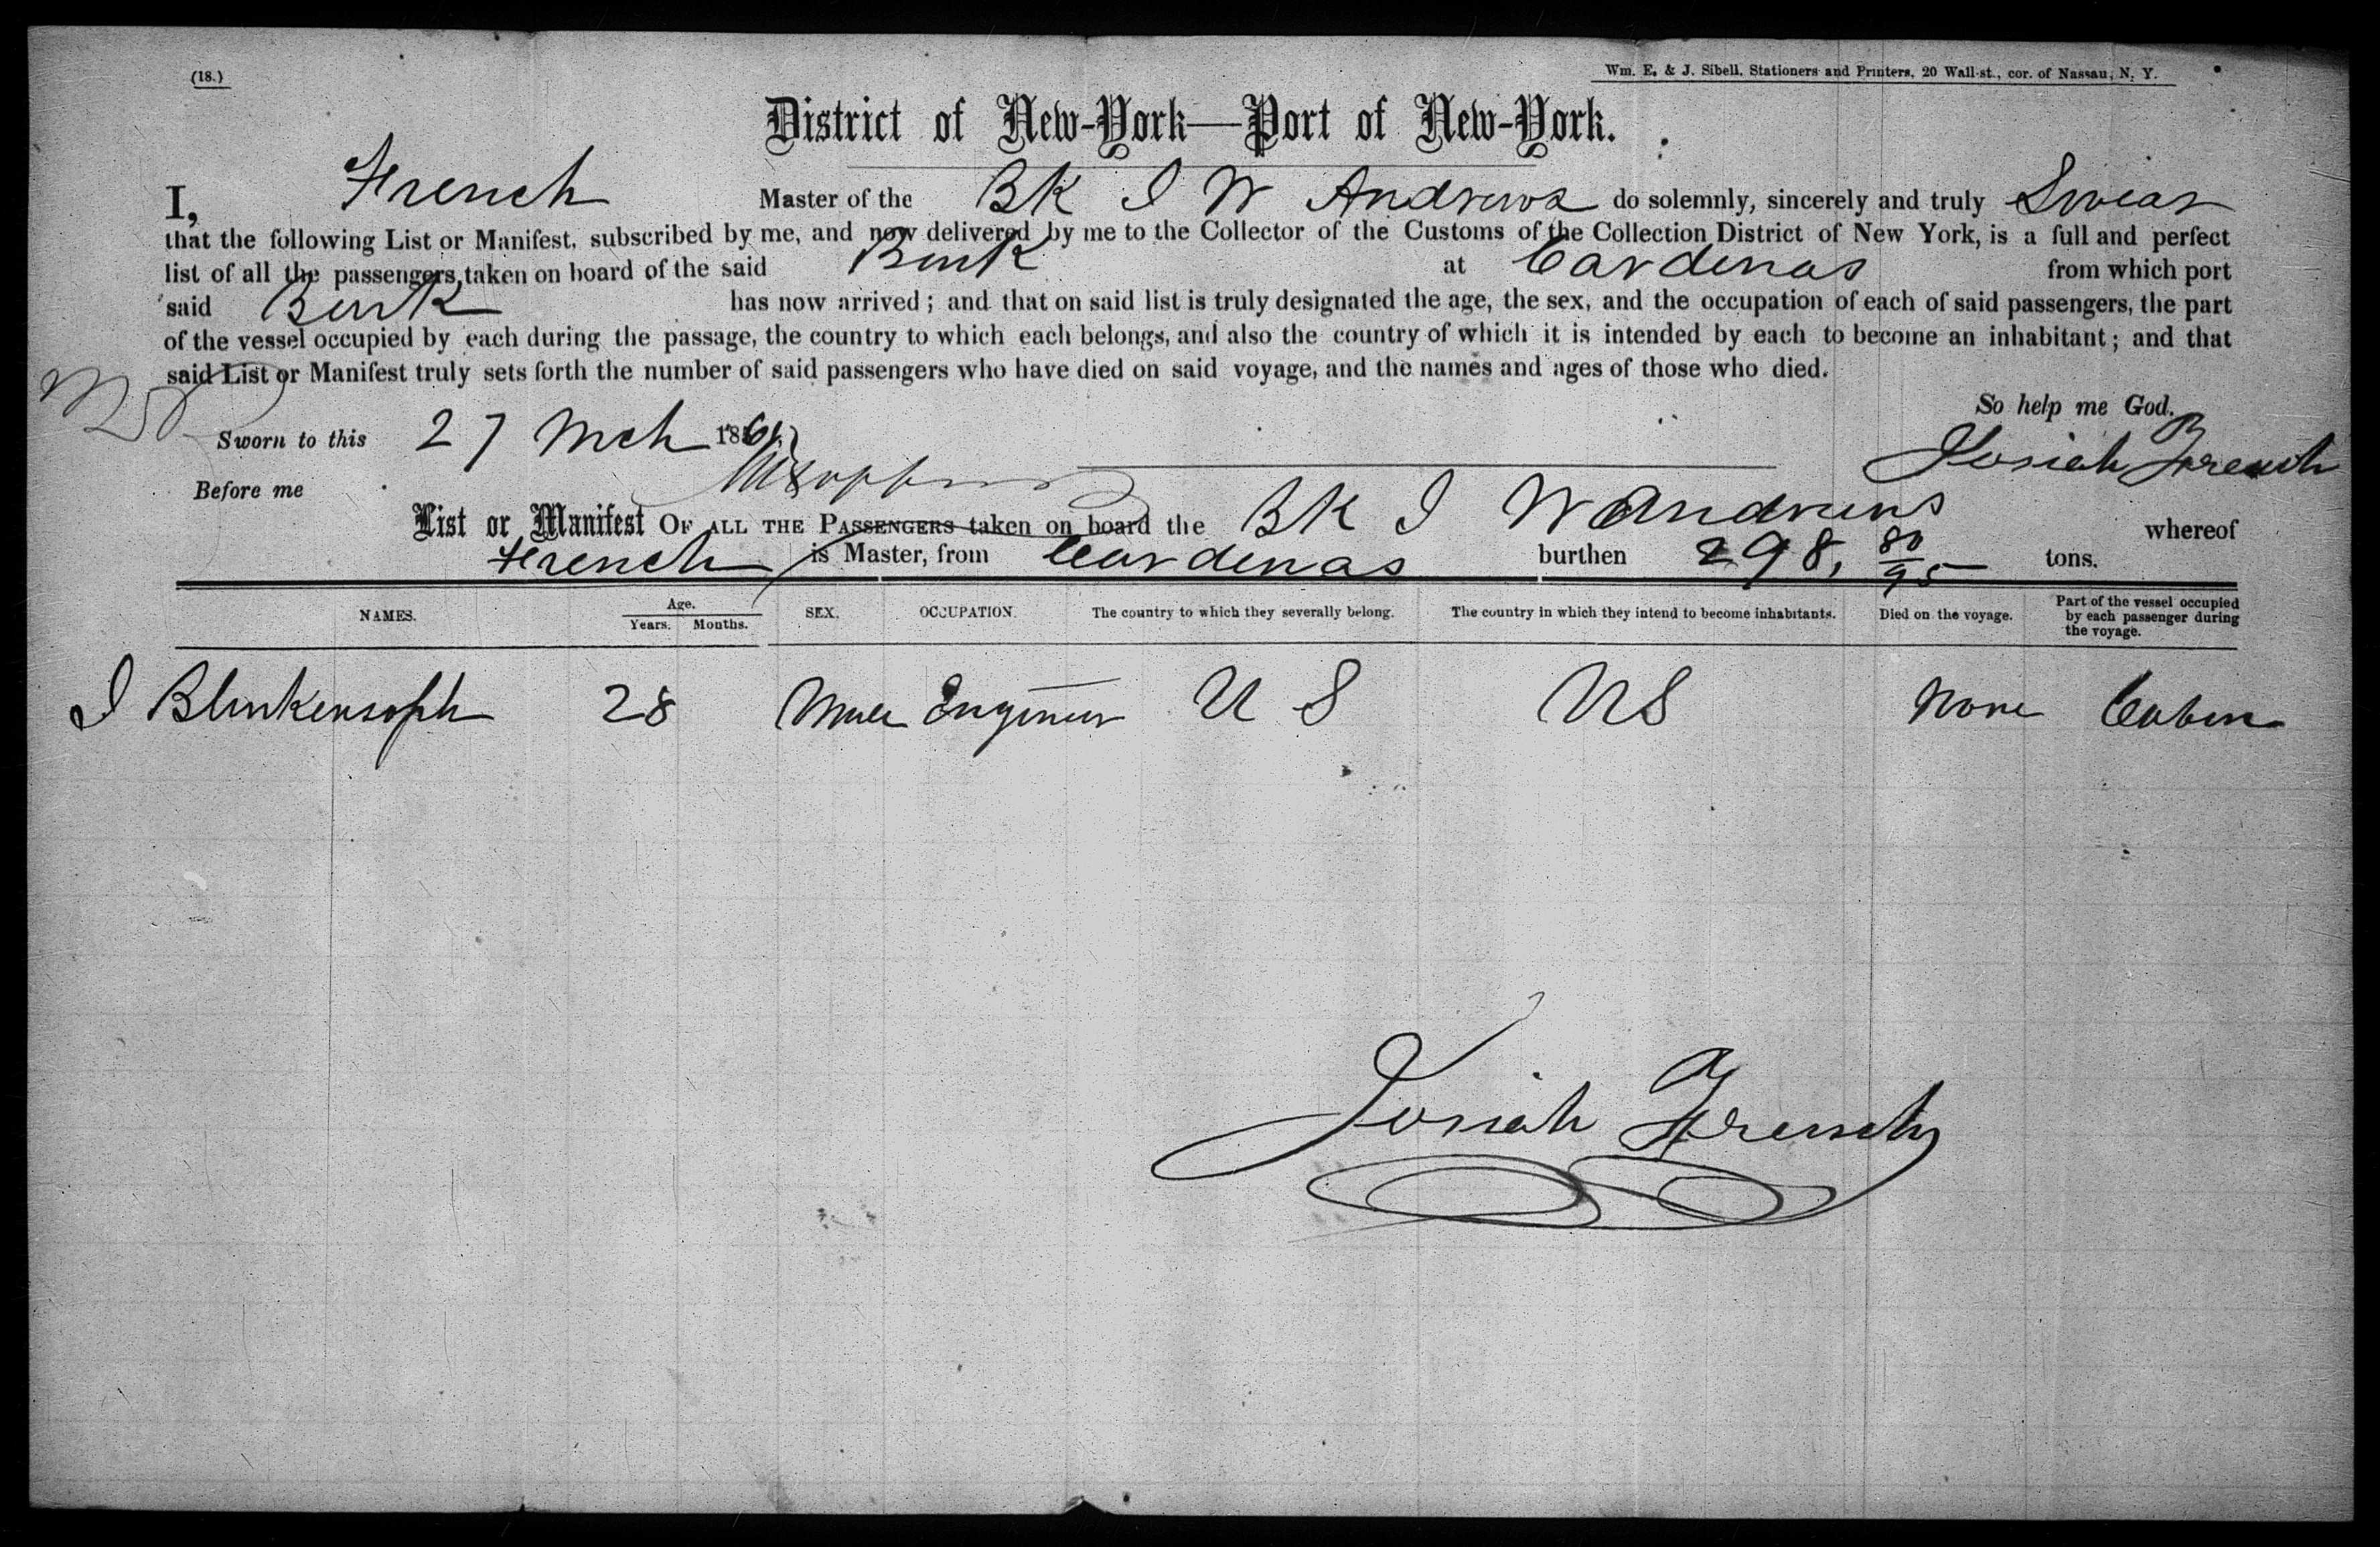 (18.)
Wm. E. & J. Sibell, Stationers and Printers, 20 Wall-st., cor. of Nassau, N. Y.
District of New-York—Port of New-York.
I, French Master of the Bk J W Andrews do solemnly, sincerely and truly Swear
that the following List or Manifest, subscribed by me, and now delivered by me to the Collector of the Customs of the Collection District of New York, is a full and perfect
list of all the passengers taken on board of the said Bark at Cardenas from which port
said Bark has now arrived; and that on said list is truly designated the age, the sex, and the occupation of each of said passengers, the part
of the vessel occupied by each during the passage, the country to which each belongs, and also the country of which it is intended by each to become an inhabitant; and that
said List or Manifest truly sets forth the number of said passengers who have died on said voyage, and the names and ages of those who died.
So help me God.
Sworn to this 27 Mch 1861
Josiah French
Before me
List or Manifest OF ALL THE PASSENGERS taken on board the BK J W Andrews whereof
French is Master, from Cardenas burthen 298, 80/95 tons.
NAMES. Age. Years. Months. SEX. OCCUPATION. The country to which they severally belong. The country in which they intend to become inhabitants. Died on the voyage. Part of the vessel occupied by each passenger during the voyage.
J Blinkensoph 28 Male Engineer U S US None Cabin
Josiah French